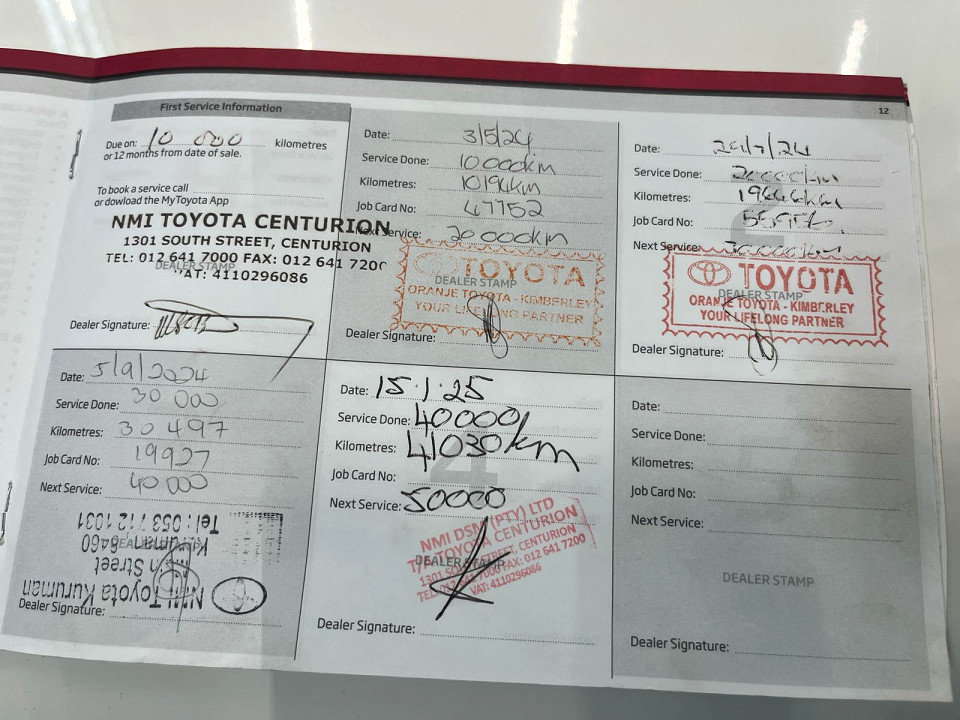 12
First Service Information
Due on: 10 000 kilometres
or 12 months from date of sale.
To book a service call
or dowload the MyToyota App
NMI TOYOTA CENTURION
1301 SOUTH STREET, CENTURION
TEL: 012 641 7000 FAX: 012 641 7200
VAT: 4110296086
DEALER STAMP
Dealer Signature:
Date: 3/5/24
Service Done: 10 000km
Kilometres: 10194km
Job Card No: 47752
Next Service: 20 000km
TOYOTA
DEALER STAMP
ORANJE TOYOTA - KIMBERLEY
YOUR LIFELONG PARTNER
Dealer Signature:
Date:
Service Done:
Kilometres:
Job Card No:
Next Service:
TOYOTA
DEALER STAMP
ORANJE TOYOTA - KIMBERLEY
YOUR LIFELONG PARTNER
Dealer Signature:
Date: 5/9/2024
Service Done: 30 000
Kilometres: 30497
Job Card No: 19927
Next Service: 40 000
Tel: 053 712 1031
Kuruman 8460
Street
NMI Toyota Kuruman
Dealer Signature:
Date: 15.1.25
Service Done: 40000
Kilometres: 41030km
Job Card No:
Next Service: 50000
4
NMI DSM (PTY) LTD
T/A TOYOTA CENTURION
1301 SOUTH STREET, CENTURION
TEL: 012 641 7000 FAX: 012 641 7200
VAT: 4110296086
DEALER STAMP
Dealer Signature:
Date:
Service Done:
Kilometres:
Job Card No:
Next Service:
DEALER STAMP
Dealer Signature: